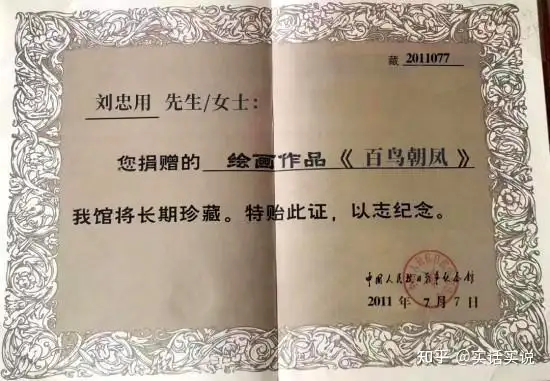 藏 2011077
刘忠用 先生/女士：
您捐赠的 绘画作品《 百鸟朝凤 》
我馆将长期珍藏。特贻此证，以志纪念。
中国人民抗日战争纪念馆
2011 年 7 月 7 日
知乎 @实话实说